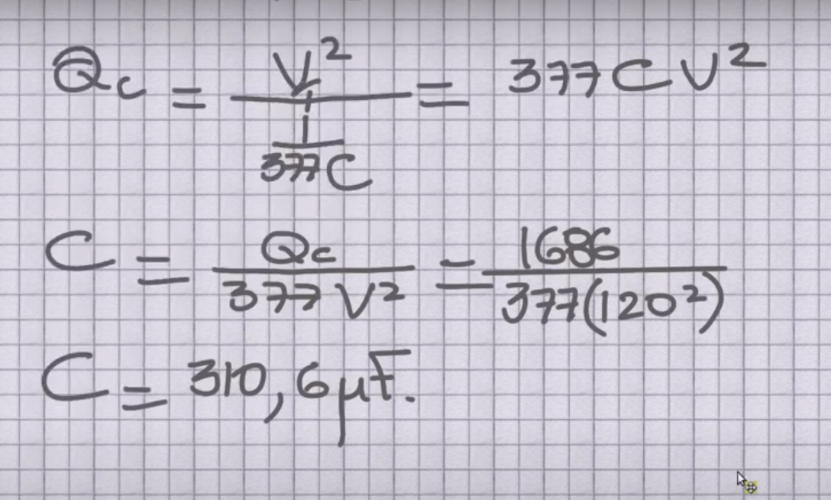 Qc = V² / (1 / 377C) = 377 C V²
C = Qc / 377 V² = 1686 / 377(120²)
C = 310,6 μF.